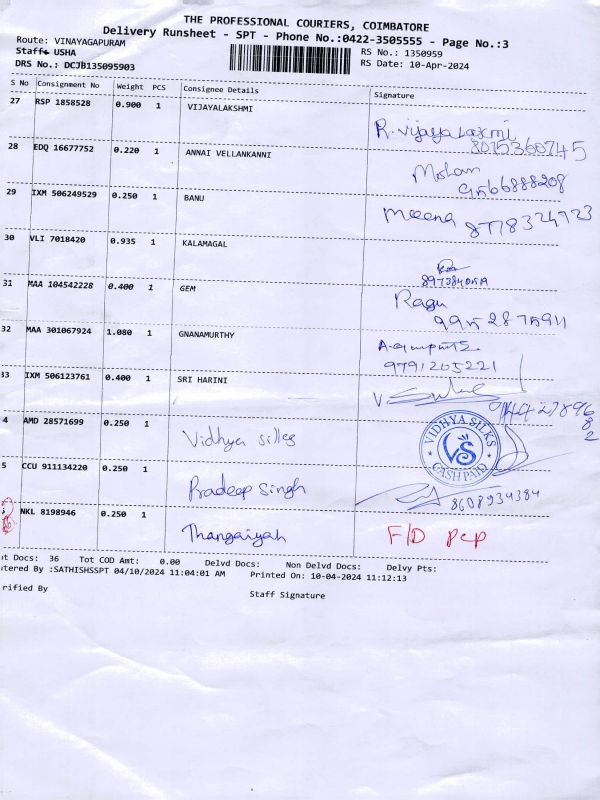 THE PROFESSIONAL COURIERS, COIMBATORE
Delivery Runsheet - SPT - Phone No.:0422-3505555 - Page No.:3
Route: VINAYAGAPURAM
Staff: USHA
RS No.: 1350959
DRS No.: DCJB135095903
RS Date: 10-Apr-2024
S No Consignment No Weight PCS Consignee Details Signature
27 RSP 1858528 0.900 1 VIJAYALAKSHMI
R. Vijayalaxmi
8015360745
28 EDQ 16677752 0.220 1 ANNAI VELLANKANNI
9566888208
29 IXM 506249529 0.250 1 BANU
Meena
8778324723
30 VLI 7018420 0.935 1 KALAMAGAL
31 MAA 104542228 0.400 1 GEM
Ragu
32 MAA 301067924 1.080 1 GNANAMURTHY
9791205221
33 IXM 506123761 0.400 1 SRI HARINI
4 AMD 28571699 0.250 1 Vidhya silks
VIDHYA SILKS
VS
CASH PAID
5 CCU 911134220 0.250 1 Pradeep Singh
8608934384
NKL 8198946 0.250 1 Thangaiyah
F/D pcp
t Docs: 36 Tot COD Amt: 0.00 Delvd Docs: Non Delvd Docs: Delvy Pts:
tered By :SATHISHSSPT 04/10/2024 11:04:01 AM Printed On: 10-04-2024 11:12:13
rified By
Staff Signature